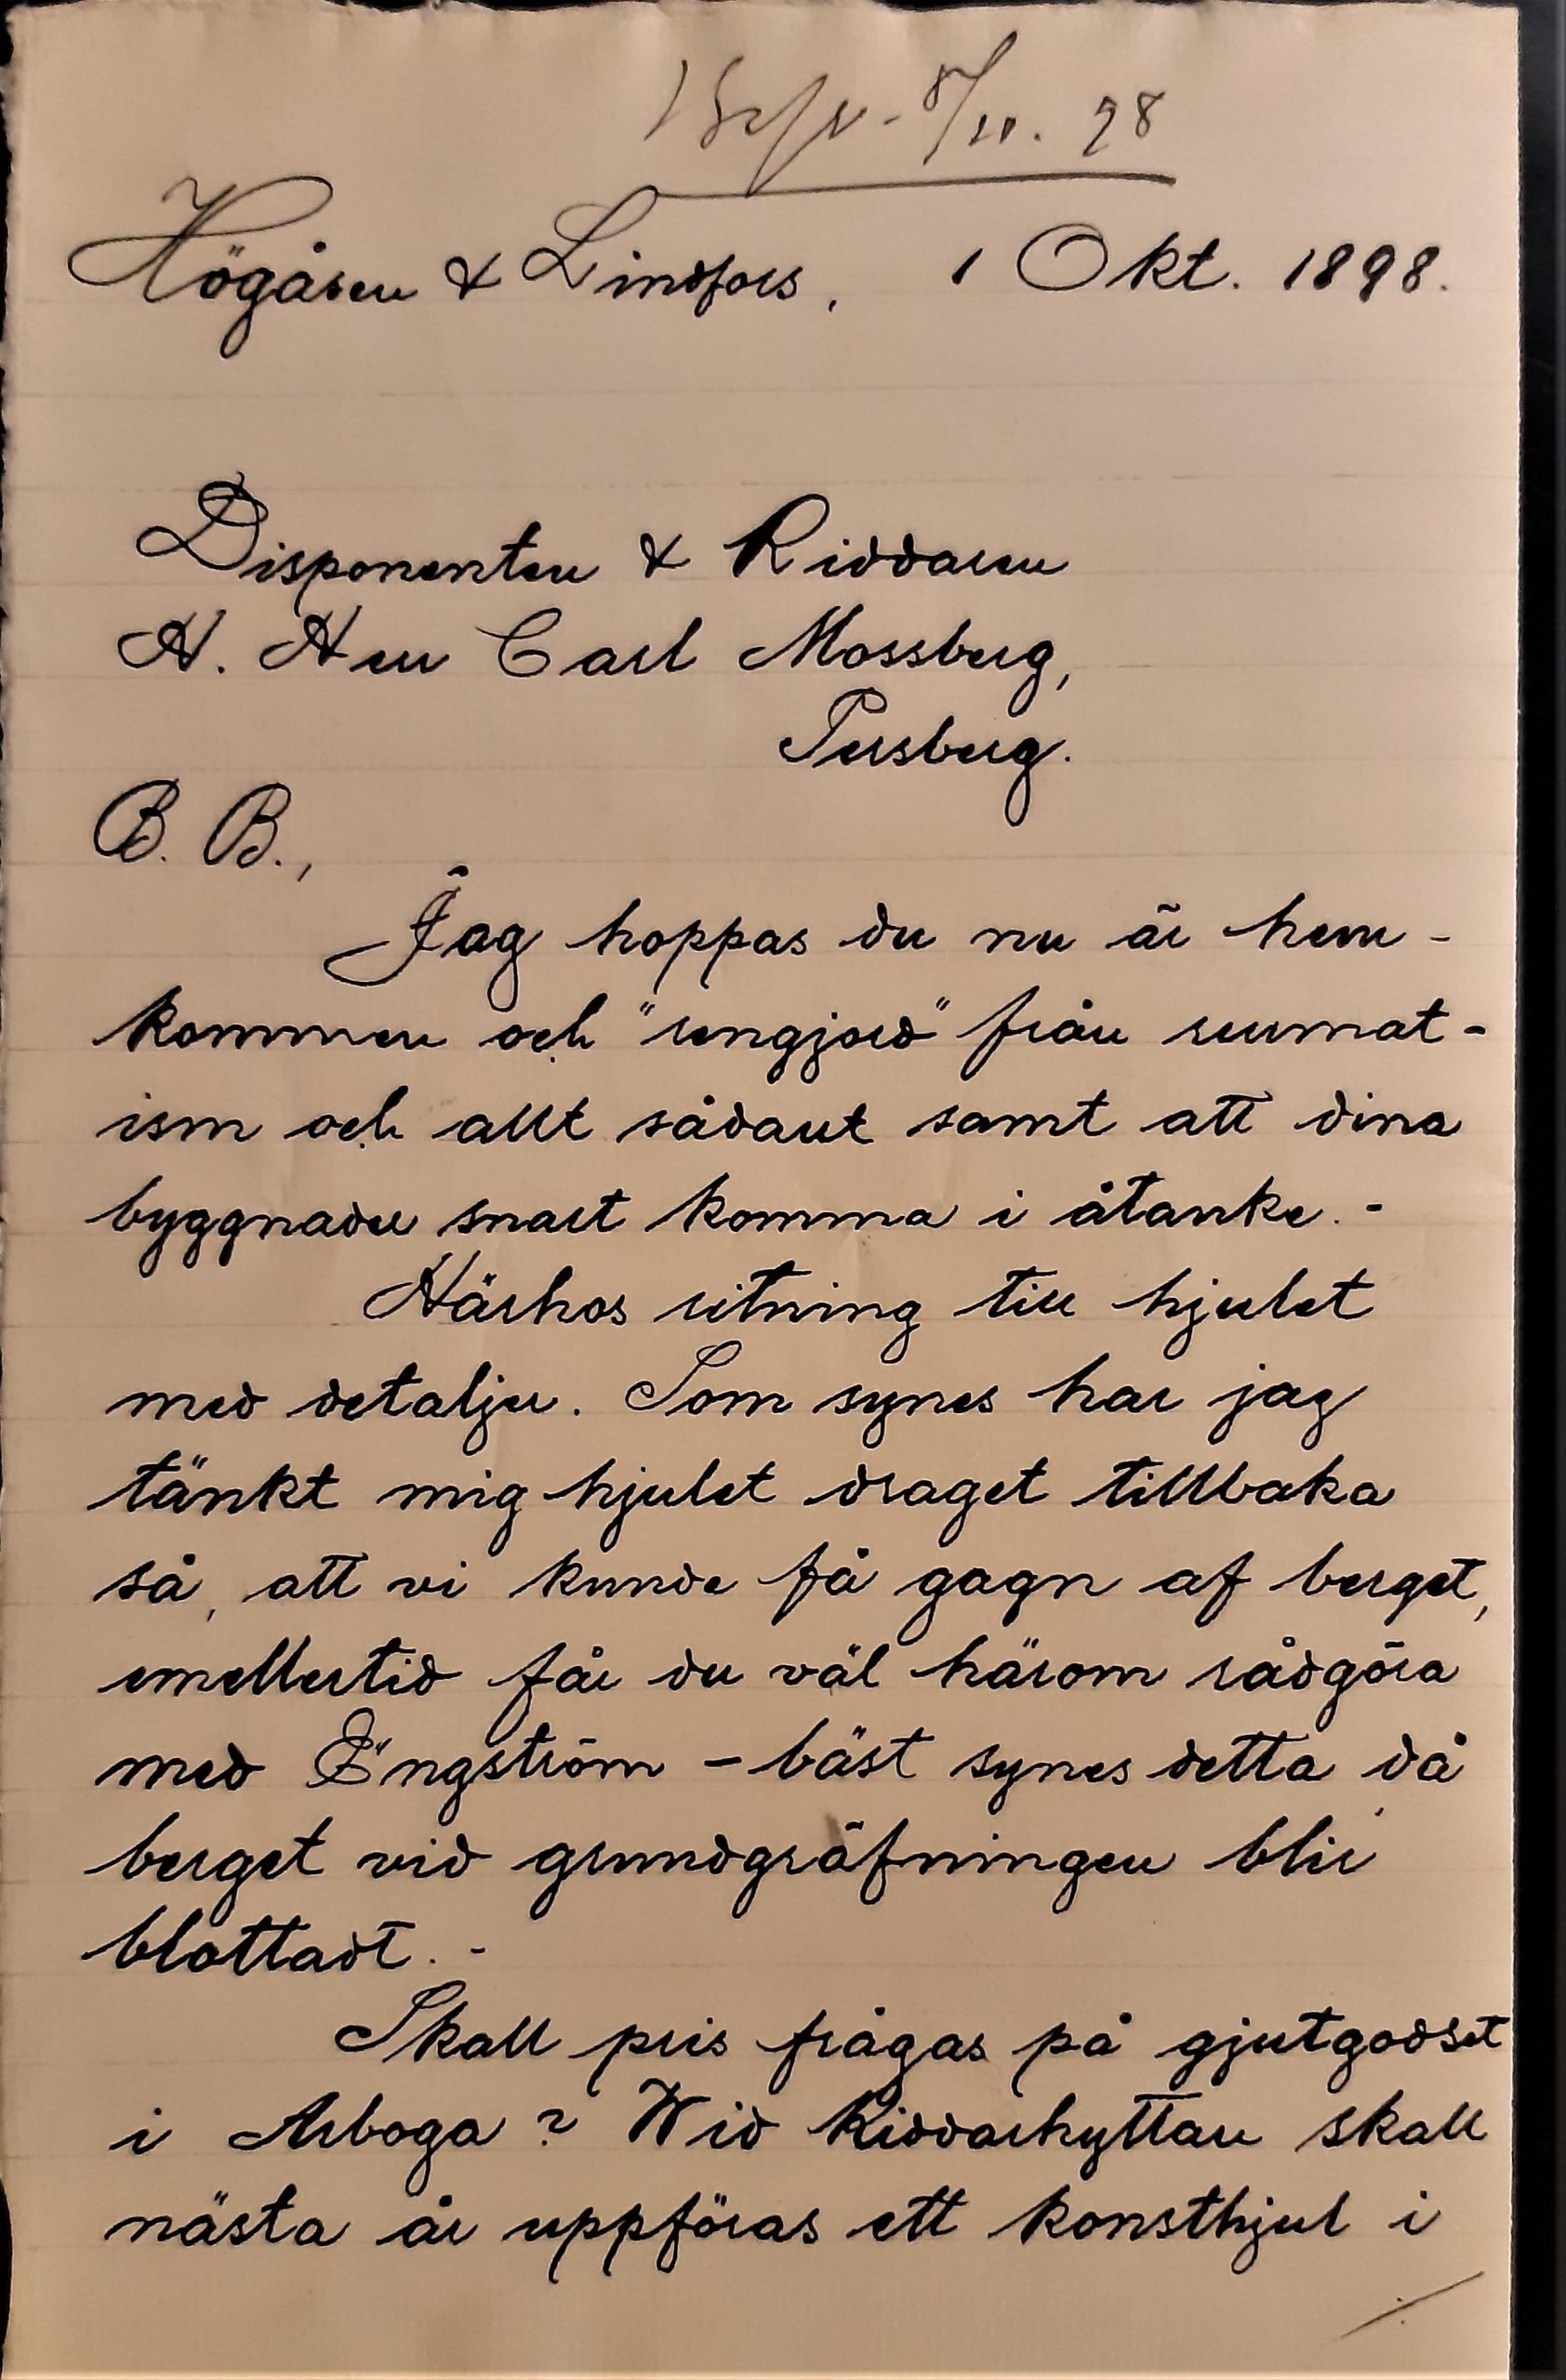 8/10. 98
Högåsen & Lindfors, 1 Okt. 1898.
Disponenten & Riddaren
H. Herr Carl Mossberg,
Persberg.
B. B.,
Jag hoppas du nu är hem-
kommen och "rengjord" från reumat-
ism och allt sådant samt att dina
byggnader snart komma i åtanke. -
Härhos ritning till hjulet
med detaljer. Som synes har jag
tänkt mig hjulet draget tillbaka
så, att vi kunde få gagn af berget,
emellertid får du väl härom rådgöra
med Engström - bäst synes detta då
berget vid grundgräfningen blir
blottadt. -
Skall pris frågas på gjutgodset
i Arboga? Wid Riddarhyttan skall
nästa år uppföras ett konsthjul i
./.